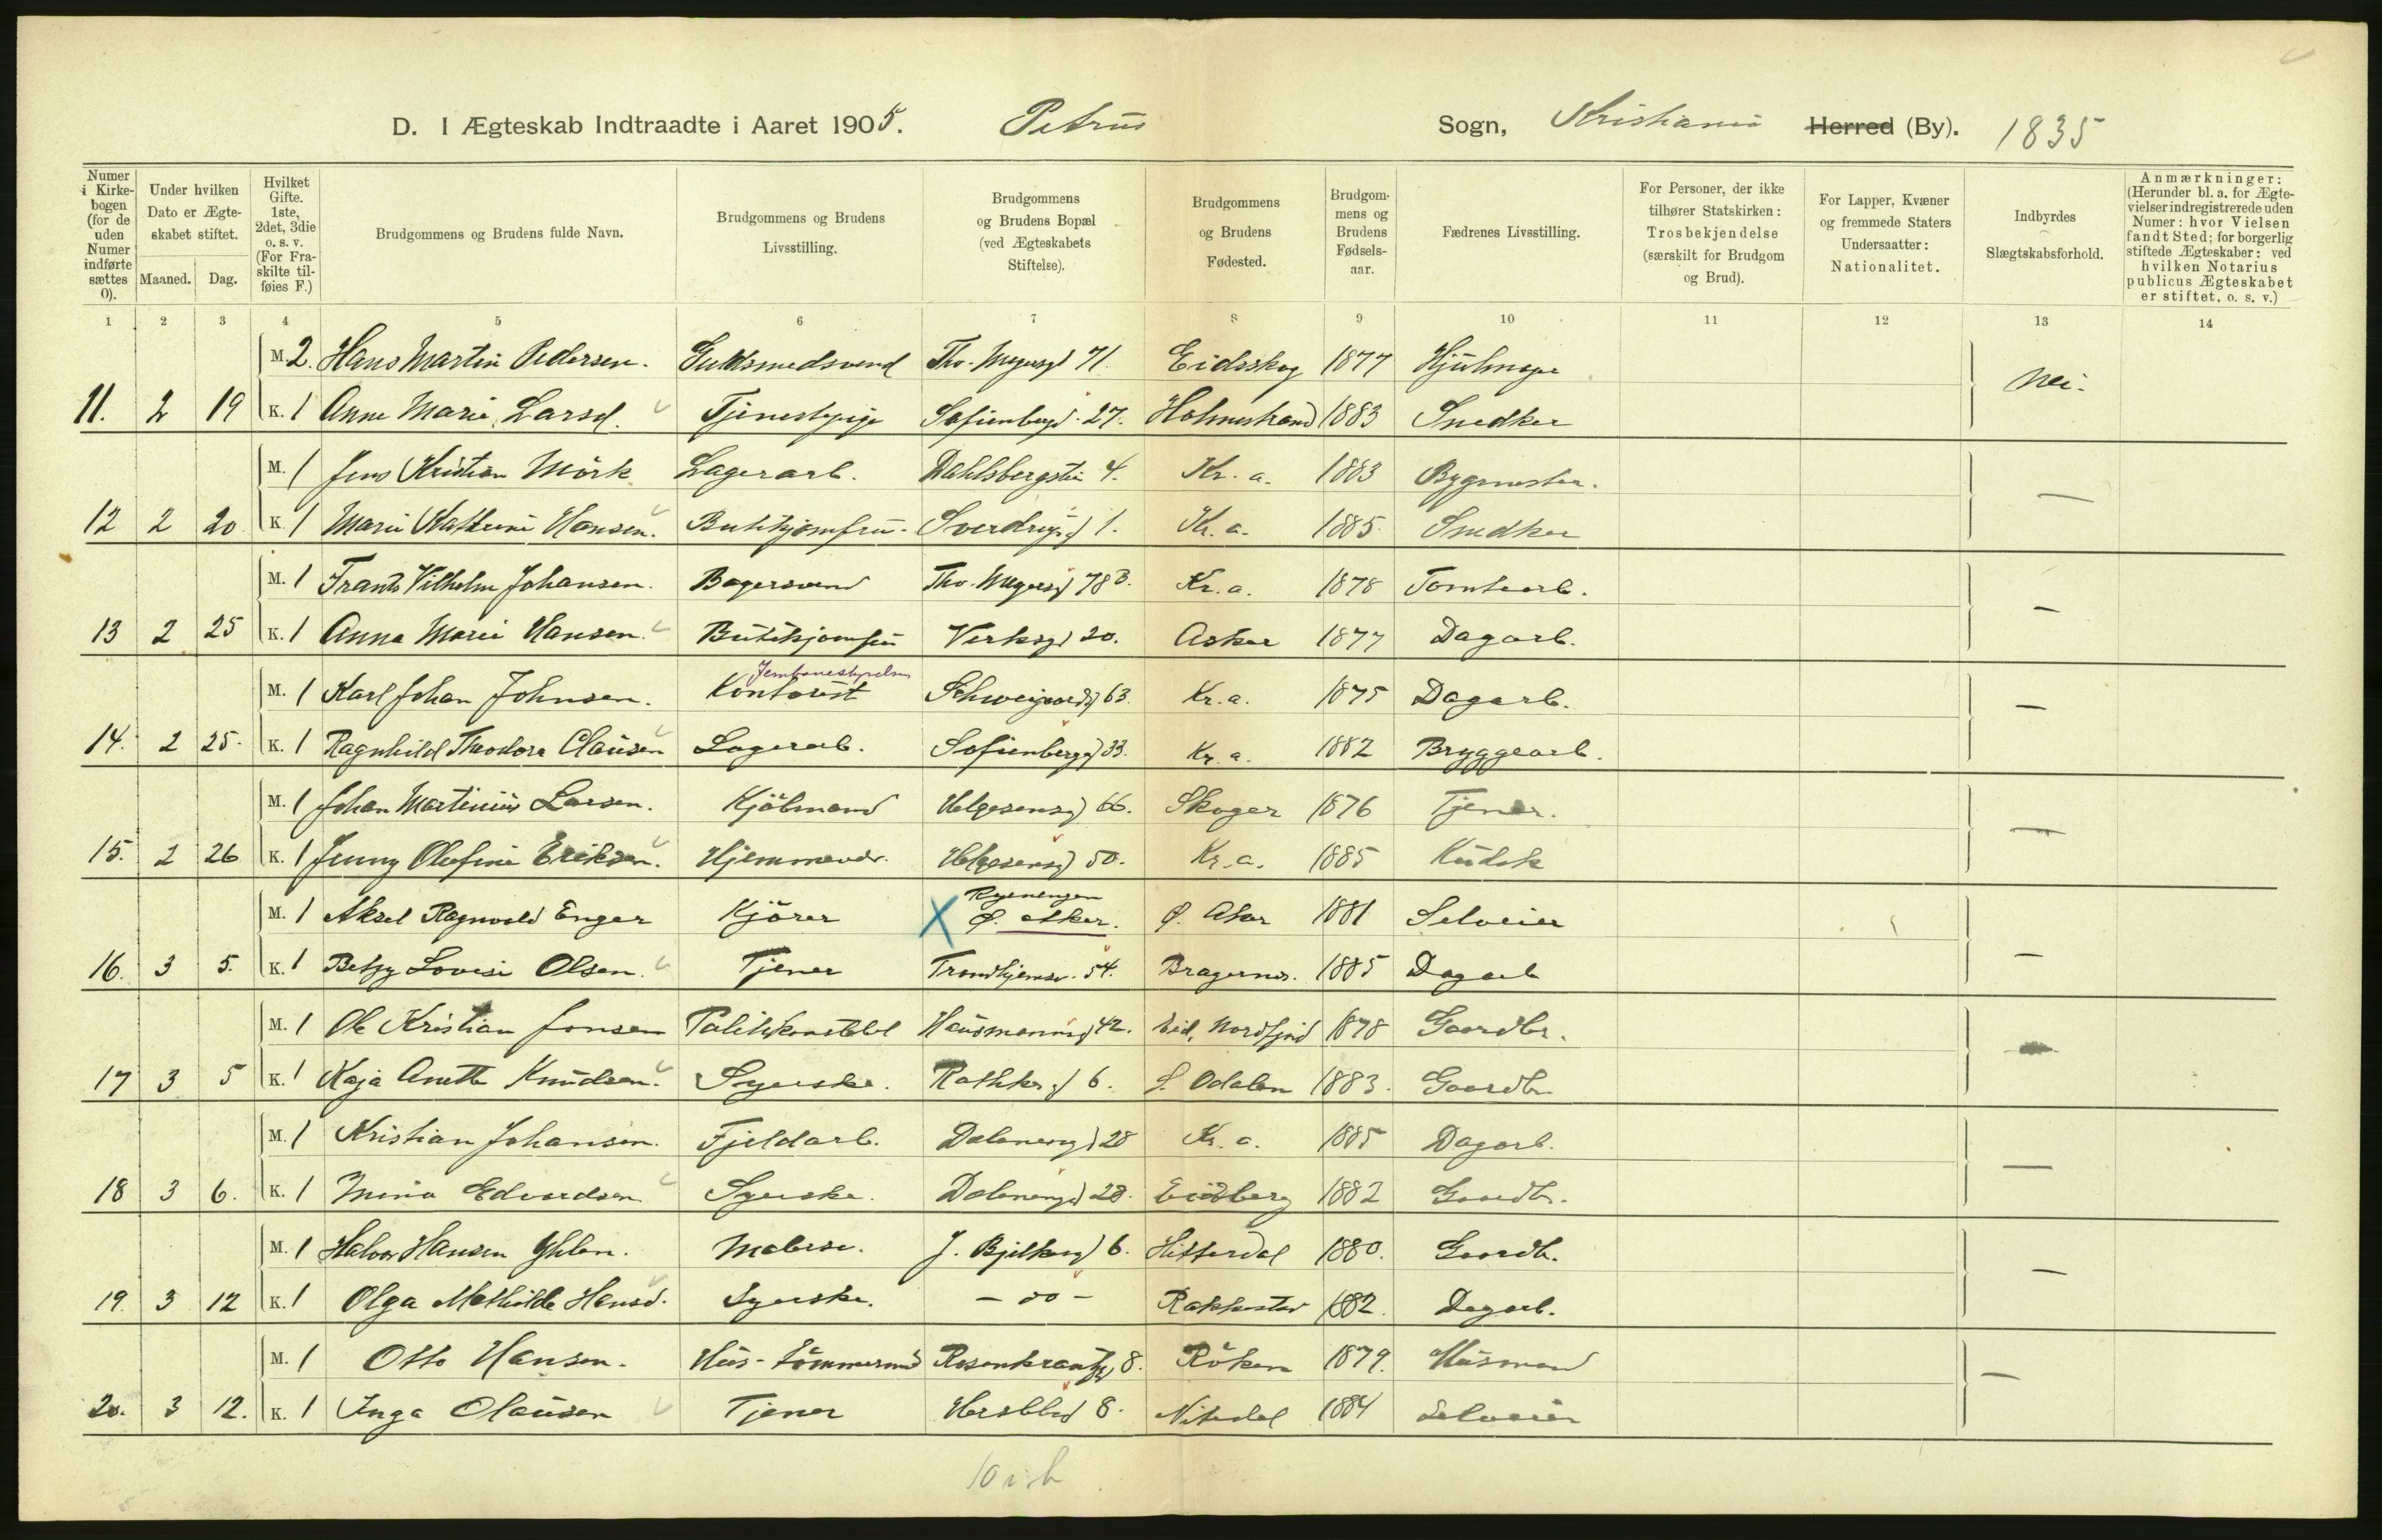 D. I Ægteskab Indtraadte i Aaret 1905. Petrus Sogn, Kristiania Herred (By). 1835
Numer i Kirkebogen (for de uden Numer indførte sættes 0).
Under hvilken Dato er Ægteskabet stiftet.
Maaned. Dag.
Hvilket Gifte. 1ste, 2det, 3die o. s. v. (For Fraskilte tilføies F.)
Brudgommens og Brudens fulde Navn.
Brudgommens og Brudens Livsstilling.
Brudgommens og Brudens Bopæl (ved Ægteskabets Stiftelse).
Brudgommens og Brudens Fødested.
Brudgommens og Brudens Fødselsaar.
Fædrenes Livsstilling.
For Personer, der ikke tilhører Statskirken: Trosbekjendelse (særskilt for Brudgom og Brud).
For Lapper, Kvæner og fremmede Staters Undersaatter: Nationalitet.
Indbyrdes Slægtskabsforhold.
Anmærkninger: (Herunder bl. a. for Ægtevielser indregistrerede uden Numer: hvor Vielsen fandt Sted; for borgerlig stiftede Ægteskaber: ved hvilken Notarius publicus Ægteskabet er stiftet, o. s. v.)
1 2 3 4 5 6 7 8 9 10 11 12 13 14
M. 2. Hans Martin Pedersen. Guldsmedsvend Tho. Meyersgd 71. Eidsskog 1877 Hjulmager
11. 2 19 K. 1 Anne Marie Larsd. Tjenestepige Sofienbergd. 27. Holmestrand 1883 Snedker Nei.
M. 1 Jens Kristian Mörk Lagerarb. Dahlsbergstien 4. Kr. a. 1883 Bygmester.
12 2 20 K. 1 Marie Kathrine Hansen. Butikjomfru. Sverdrupsgd 1. Kr. a. 1885. Snedker —
M. 1 Frants Vilhelm Johansen. Bagersvend Tho. Meyersgd 78 B. Kr. a. 1878 Tomtearb.
13 2 25 K. 1 Anna Marie Hansen. Butikjomfru Verksgd 20. Asker 1877 Dagarb. —
Jernbanestyrelsen
M. 1 Karl Johan Johnsen. Kontorist Schweigaardsgd 63. Kr. a. 1875 Dagarb.
14. 2 25. K. 1 Ragnhild Theodora Clausen Lagerarb. Sofienberggd 33. Kr. a. 1882 Bryggearb. —
M. 1 Johan Martinius Larsen. Kjöbmand Helgesensgd 66. Skoger 1876 Tjener.
15. 2 26 K. 1 Jenny Olefine Eriksen. Hjemmevær. Helgesensgd 50. Kr. a. 1885 Kudsk —
M. 1 Aksel Ragnvald Enger Kjörer Ryenengen Ø. Aker. Ø. Aker 1881 Selveier
16. 3 5. K. 1 Betzy Lovise Olsen. Tjener Trondhjemsv. 54. Bragernes. 1885 Dagarb —
M. 1 Ole Kristian Jonsen Politikonstabel Hausmannsgd 42. Eid, Nordfjord 1878 Gaardbr.
17 3 5 K. 1 Kaja Anette Knudsen. Syerske. Rathkesgd 6. S. Odalen 1883. Gaardbr. —
M. 1 Kristian Johansen. Fjeldarb. Dælenenggd 28 Kr. a. 1885 Dagarb.
18 3 6. K. 1 Mina Edvardsen Syerske. Dælenenggd 28. Eidsberg 1882 Gaardbr. —
M. 1 Halvor Hansen Yhlen. Malersv. J. Bjelkesgd 6. Hitterdal 1880. Gaardb.
19. 3 12 K. 1 Olga Mathilde Hansd. Syerske. — do — Rakkestad 1882. Dagarb. —
M. 1 Otto Hansen. Hus-tömmermd Rosenkrantzgd 8. Röken 1879. Husmand
20. 3 12. K. 1 Inga Clausen Tjener Herslebsgd 8. Nitedal 1884 Selveier —